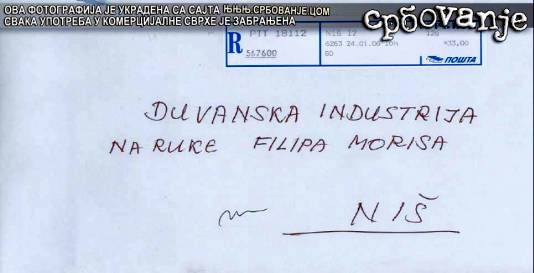 ОВА ФОТОГРАФИЈА ЈЕ УКРАДЕНА СА САЈТА ЊЊЊ.СРБОВАЊЕ.ЦОМ
СВАКА УПОТРЕБА У КОМЕРЦИЈАЛНЕ СВРХЕ ЈЕ ЗАБРАЊЕНА
србовање
R PTT 18112
567600
Niš 12
6263 24.01.00 10m
80
=33,00
ПОШТА
DUVANSKA INDUSTRIJA
NA RUKE FILIPA MORISA
NIŠ